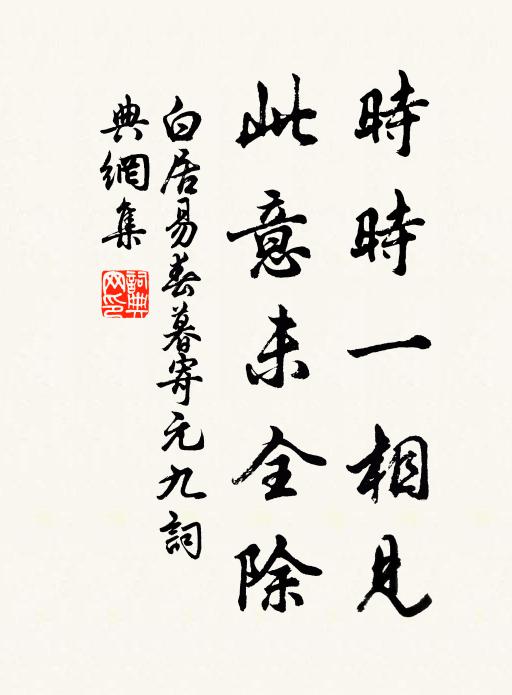 時時一相見
此意未全除
白居易春暮寄元九詞
典網集
詞典
网印